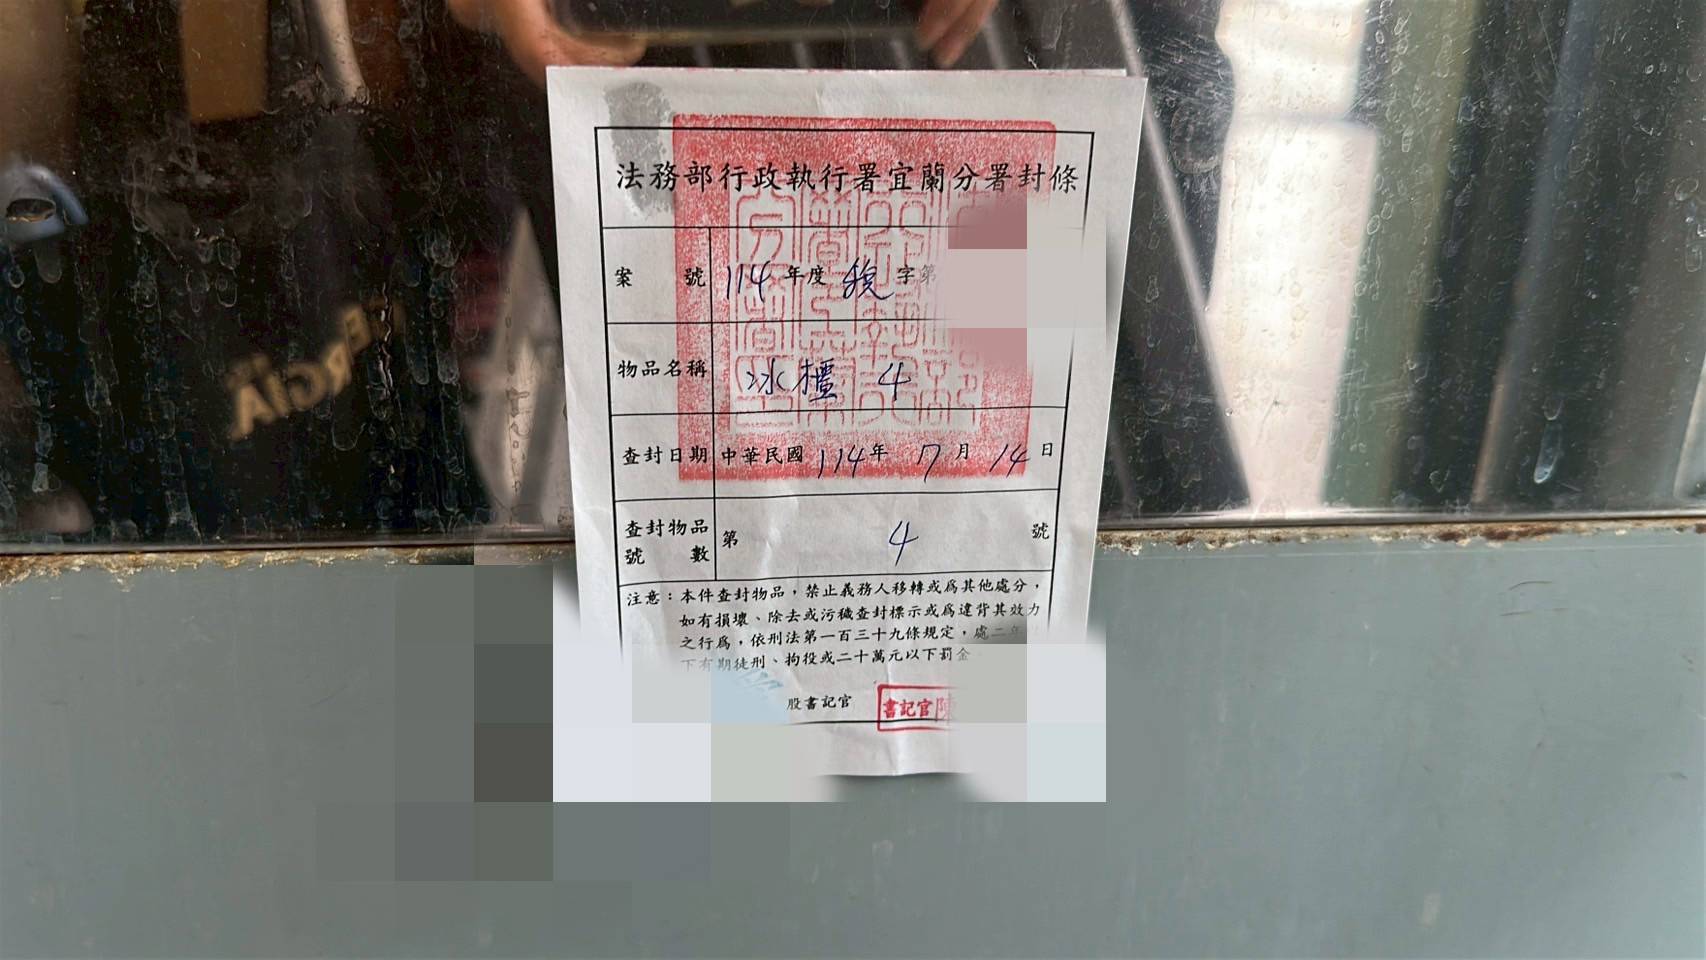 法務部行政執行署宜蘭分署封條
案號 114年度 稅 字第
物品名稱 冰櫃 4
查封日期 中華民國114年7月14日
查封物品號數 第 4 號
注意：本件查封物品，禁止義務人移轉或爲其他處分，
如有損壞、除去或污穢查封標示或爲違背其效力
之行爲，依刑法第一百三十九條規定，處二年
下有期徒刑、拘役或二十萬元以下罰金
股書記官 書記官陳